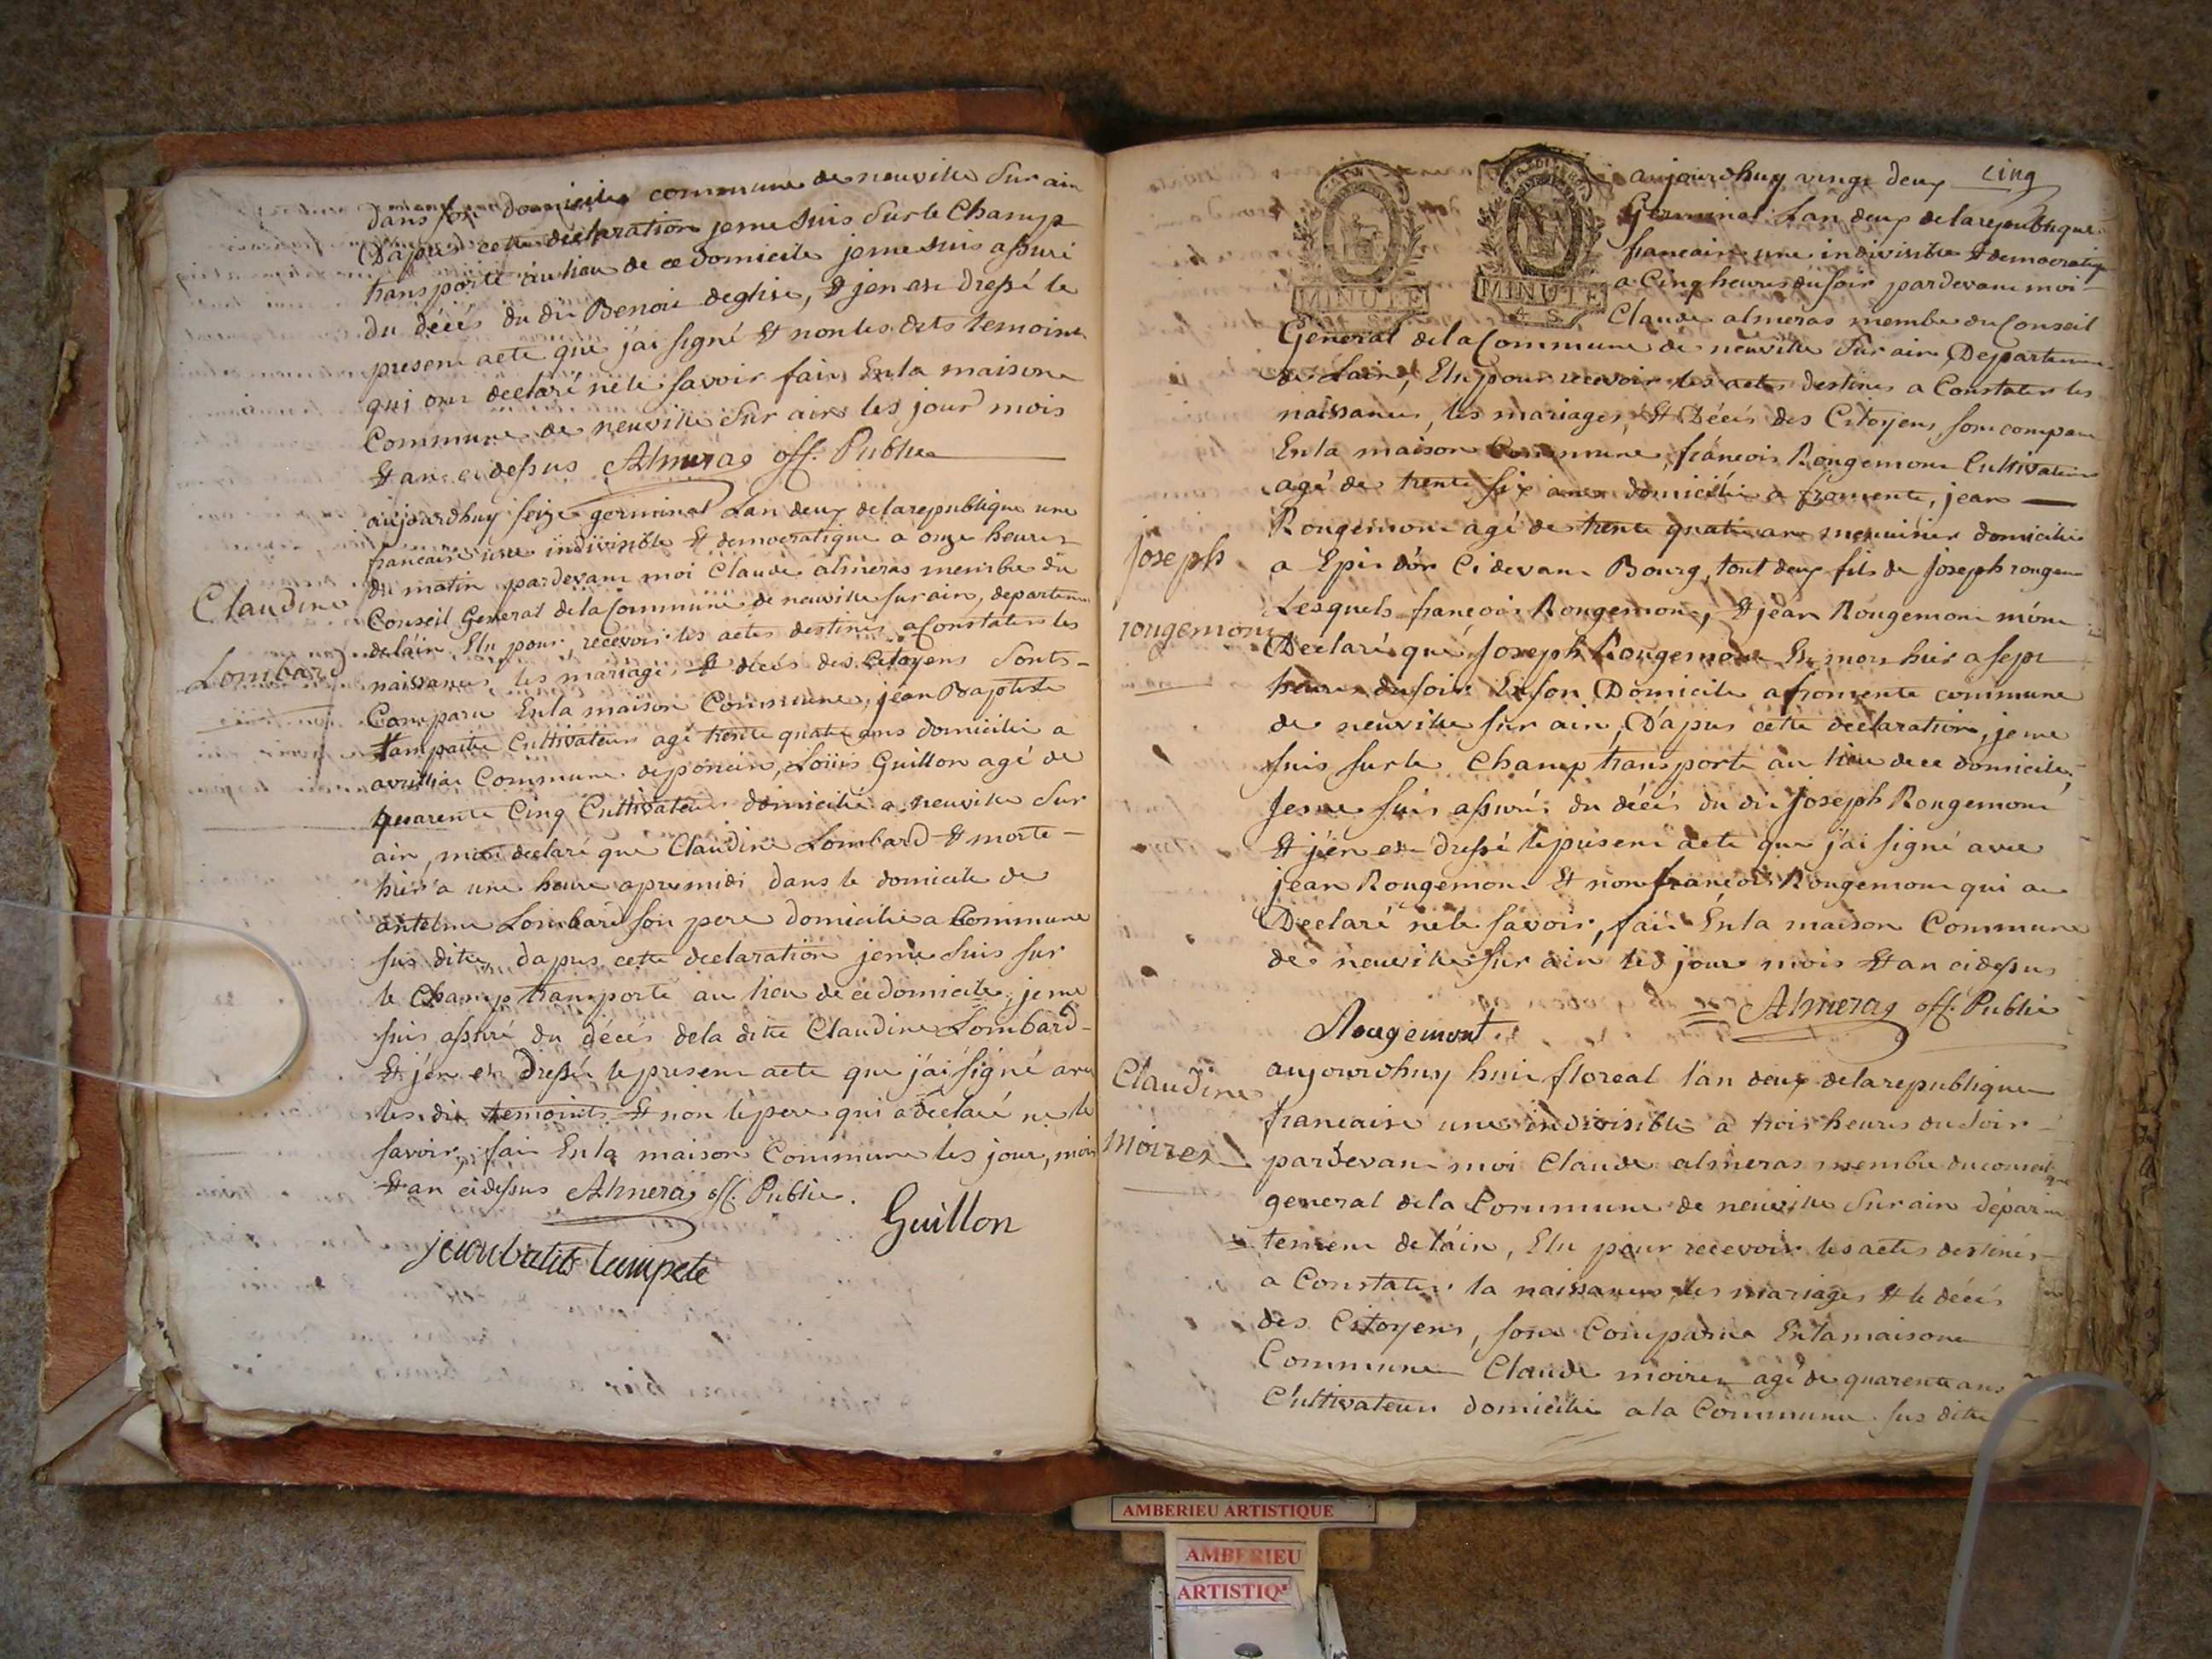 dans son domicile commune de neuville Sur ain
Dapres cette declaration je me suis Sur le Champ
transporté au lieu de ce domicile je me suis assuré
du décés du dit Benoit deglise, et jen ai dressé le
present acte que j'ai signé et non les dits temoins
qui ont declaré ne le savoir fait En la maison
Commune de neuville Sur ain les jour mois
et an ci dessus Almeras off. Public
aujourdhuy seize germinal Lan deux de la republique une
francaise une indivisible et democratique a onze heures
du matin pardevant moi Claude almeras membre du
Conseil General de la Commune de neuville sur ain, departem
de lain Elu pour recevoir les actes destinés a Constater les
naissances les mariages et décés des Citoyens Sonts
Comparu En la maison Commune, jean Baptiste
tampaite Cultivateur agé trente quatre ans domicilié a
avrillia Commune deponcin, Loüis Guillon agé de
quarente Cinq Cultivateur domicilié a neuville Sur
ain, mon declaré que Claudine Lombard et morte
hier a une heure apres midi dans le domicile de
antelme Lombard son pere domicilié a Commune
sus dite, dapres cette declaration je me suis sur
le Champ transporté au lieu de ce domicile, je me
suis assuré du décés de la dite Claudine Lombard
et j'en ai Dressé le present acte que j'ai signé avec
les dit temoints et non le pere qui a declaré ne le
savoir, fait En la maison Commune les jour, mois
et an ci dessus Almeras off. Public.
Guillon
jean batite tampete
Claudine
Lombard
cinq
MINUTE
MINUTE
4 S
aujourdhuy vingt deux
Germinal Lan deux de la republique
francaise une indivisible et democratiq
a Cinq heures du soir pardevant moi
Claude almeras membre du Conseil
General de la Commune de neuville Sur ain, Departem
de Lain, Elu pour recevoir les actes destinés a Constater les
naissances, les mariages, et Décés des Citoyens, sont comparu
En la maison Commune, francois Rougemont Cultivateur
agé de trente six ans domicilié a fromente, jean
Rougemont agé de trente quatre ans menuisier domicilié
a Epi d'or Ci devant Bourg, tout deux fils de Joseph rougem
Lesquels francois Rougemont, et jean Rougemont m'ont
Declaré que Joseph Rougemont Et mort hier a sept
heures du soir En son Domicile a fromente commune
de neuville sur ain, D'apres cette declaration, je me
suis sur le Champ transporté au lieu de ce domicile,
Je me suis assuré du décés du dit Joseph Rougemont
et j'en ai dressé le present acte que j'ai signé avec
jean Rougemont et non francois Rougemont qui a
Declaré ne le savoir, fait En la maison Commune
de neuville Sur ain les jour mois et an ci dessus
Almeras off. Public
Rougemont
joseph
rougemont
aujourdhuy huit floreal l'an deux de la republique
francaise une indivisible a trois heures du soir
pardevant moi Claude almeras membre du conseil
general de la Commune de neuville Sur ain dépar
tement de l'ain, Elu pour recevoir les actes destinés
a Constater la naissances, les mariages et le décés
des Citoyens, sont Comparue En la maison
Commune Claude moiret agé de quarente ans
Cultivateur domicilié a la Commune sus dite
Claudine
moiret
AMBERIEU ARTISTIQUE
AMBERIEU
ARTISTIQ